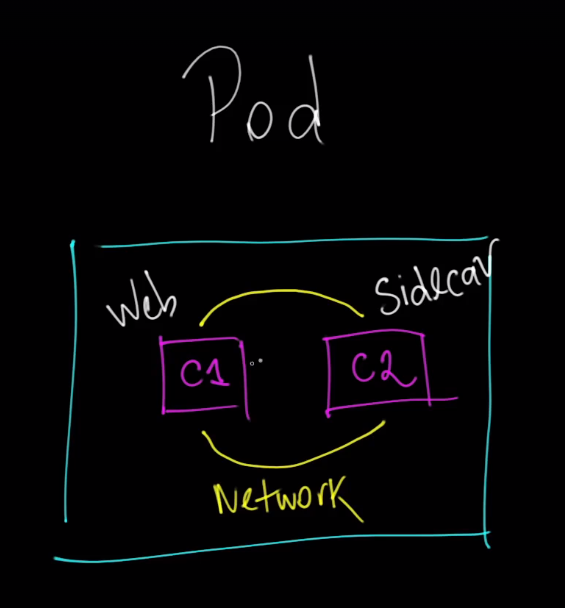 Pod
Web
Sidecar
C1
C2
Network